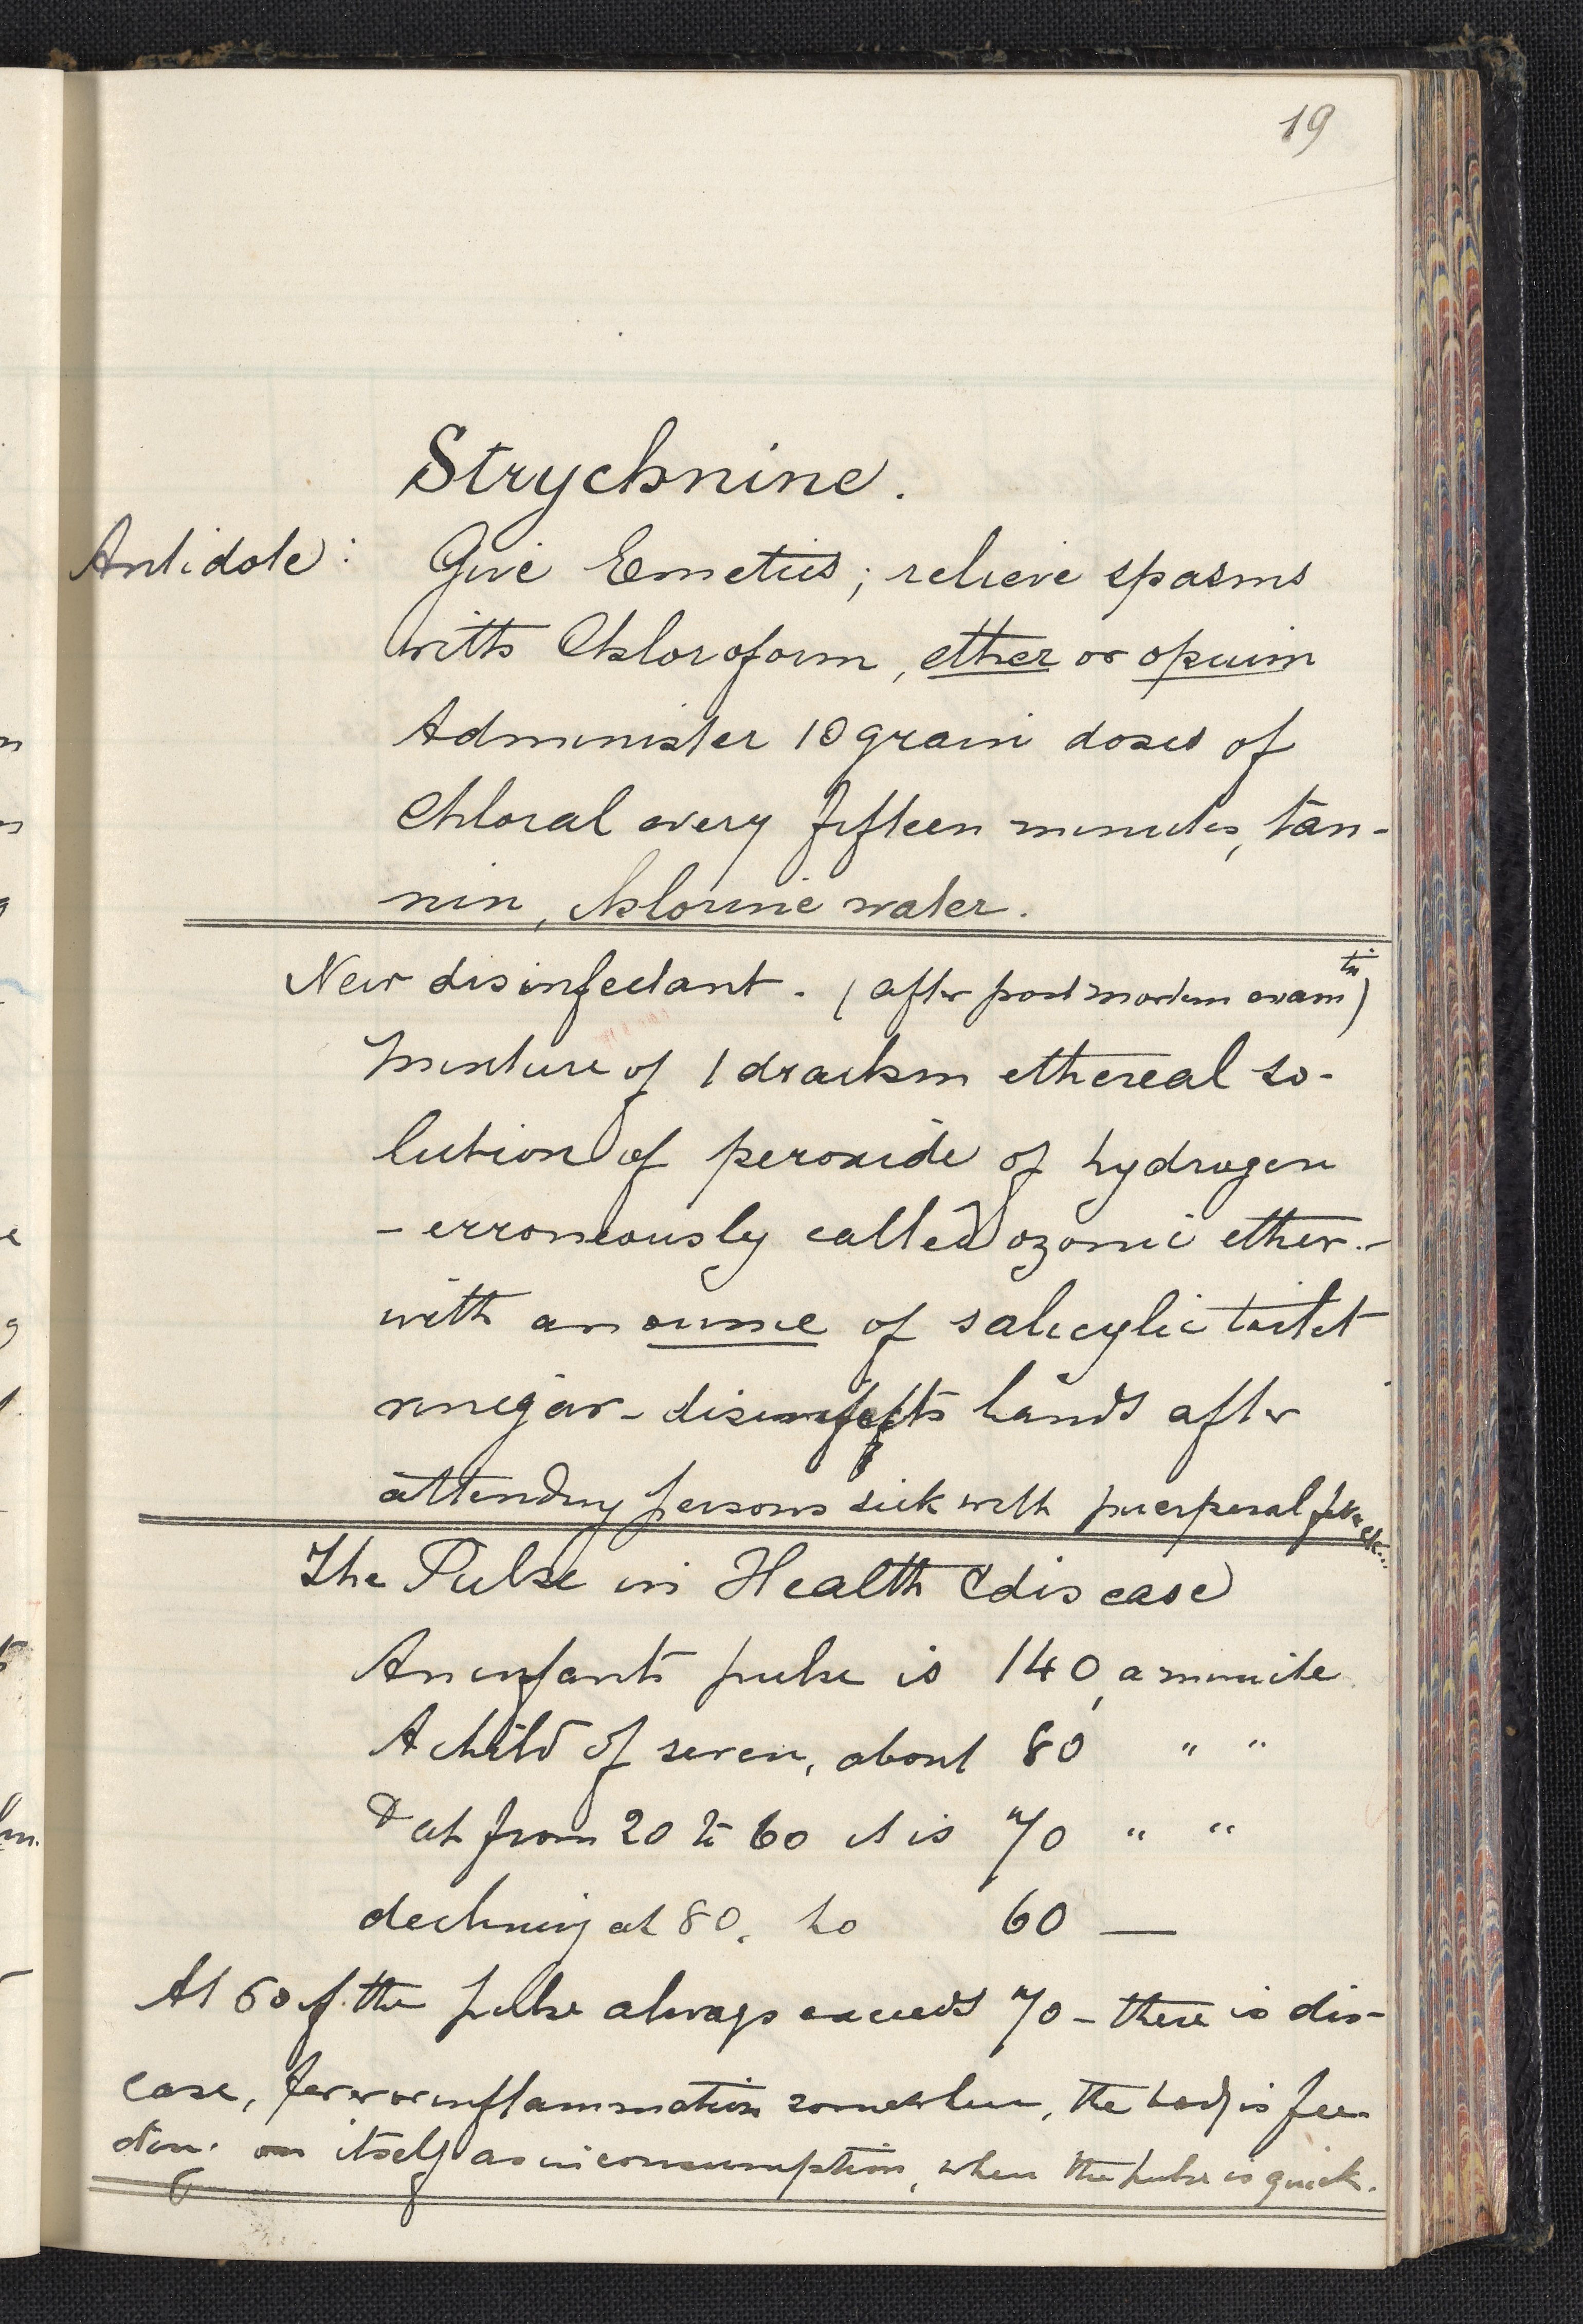 19
Strychnine.
Antidote: Give Emetics; relieve spasms
with Chloroform, ether or opium
Administer 10 grain doses of
Chloral every fifteen minutes, tan-
nin, chlorine water.
New disinfectant. (after post mortem examtn)
Mixture of 1 drachm ethereal so-
lution of peroxide of hydrogen
- erroneously called ozonic ether.-
with an ounce of salicylic toilet
vinegar - disinfects hands after
attending persons sick with puerperal fever etc...
The Pulse in Health & disease
An infants pulse is 140, a minute
A child of seven, about 80 " "
& at from 20 to 60 it is 70 " "
declining at 80, to 60 —
At 60 if the pulse always exceeds 70 - there is dis-
ease, fever or inflammation somewhere, the body is fee-
ding on itself as in consumption, when the pulse is quick.